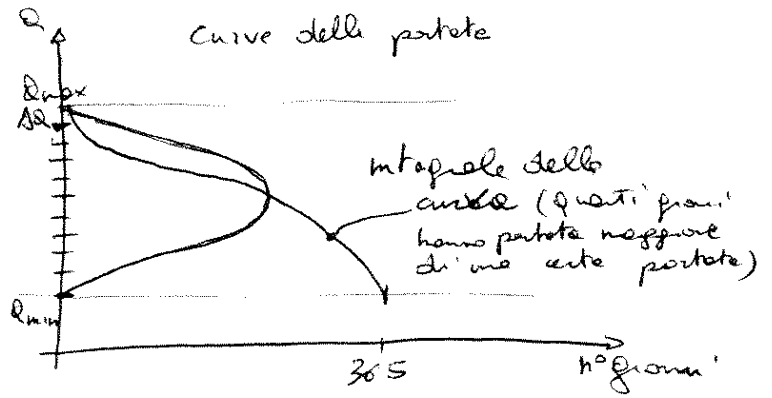 Q
Curve delle portate
Qmax
ΔQ
integrale della
curva (Quanti giorni
hanno portata maggiore
di una certa portata)
Qmin
365
n° giorni